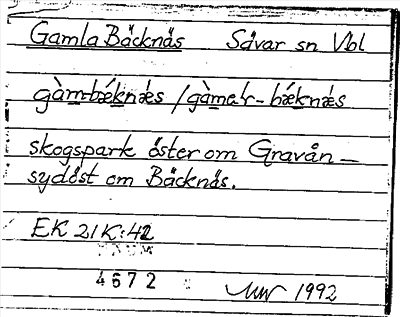 Gamla Bäcknäs Sävar sn Vbl
gàm-bǽknǽs / gàmal-bǽknǽs
skogspark öster om Gravån –
sydöst om Bäcknäs.
EK 21K:42
4672
1992